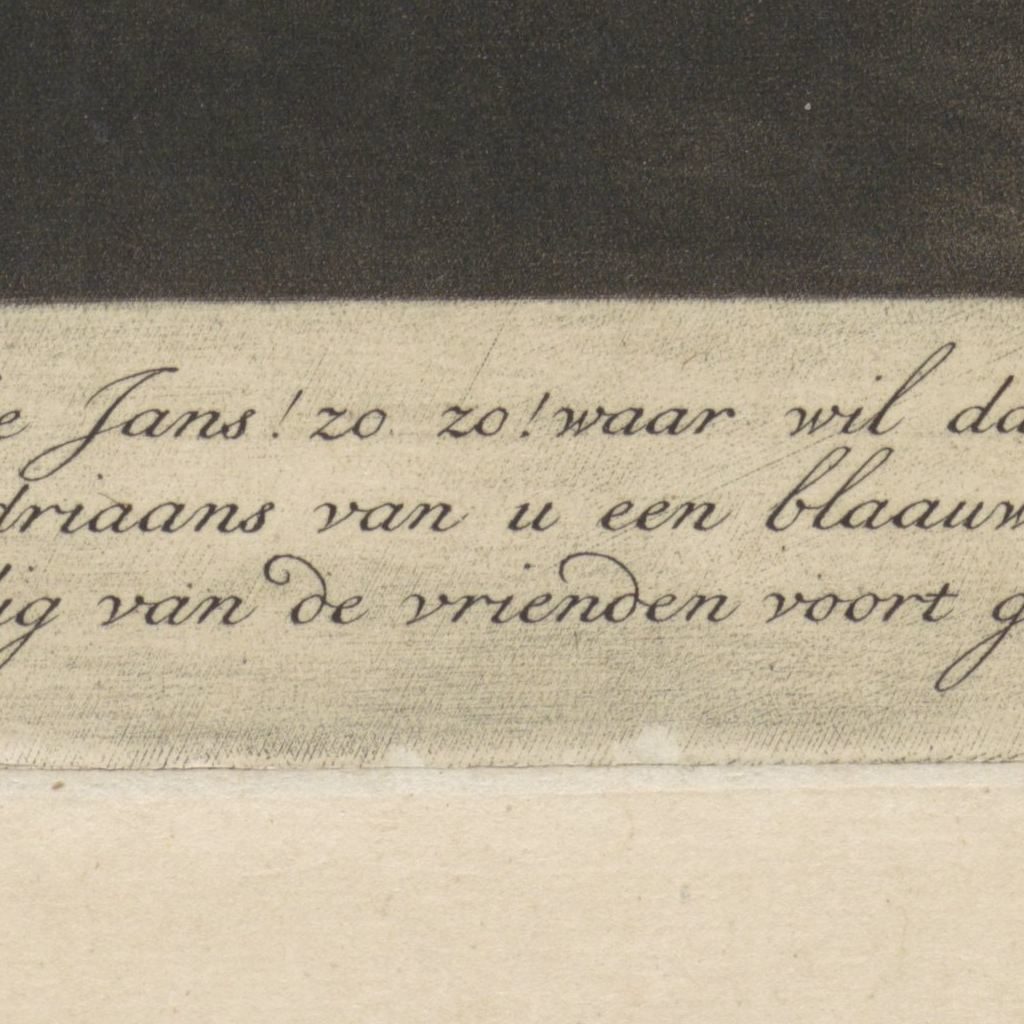 e Jans! zo zo! waar wil da
driaans van u een blaauw
lig van de vrienden voort g